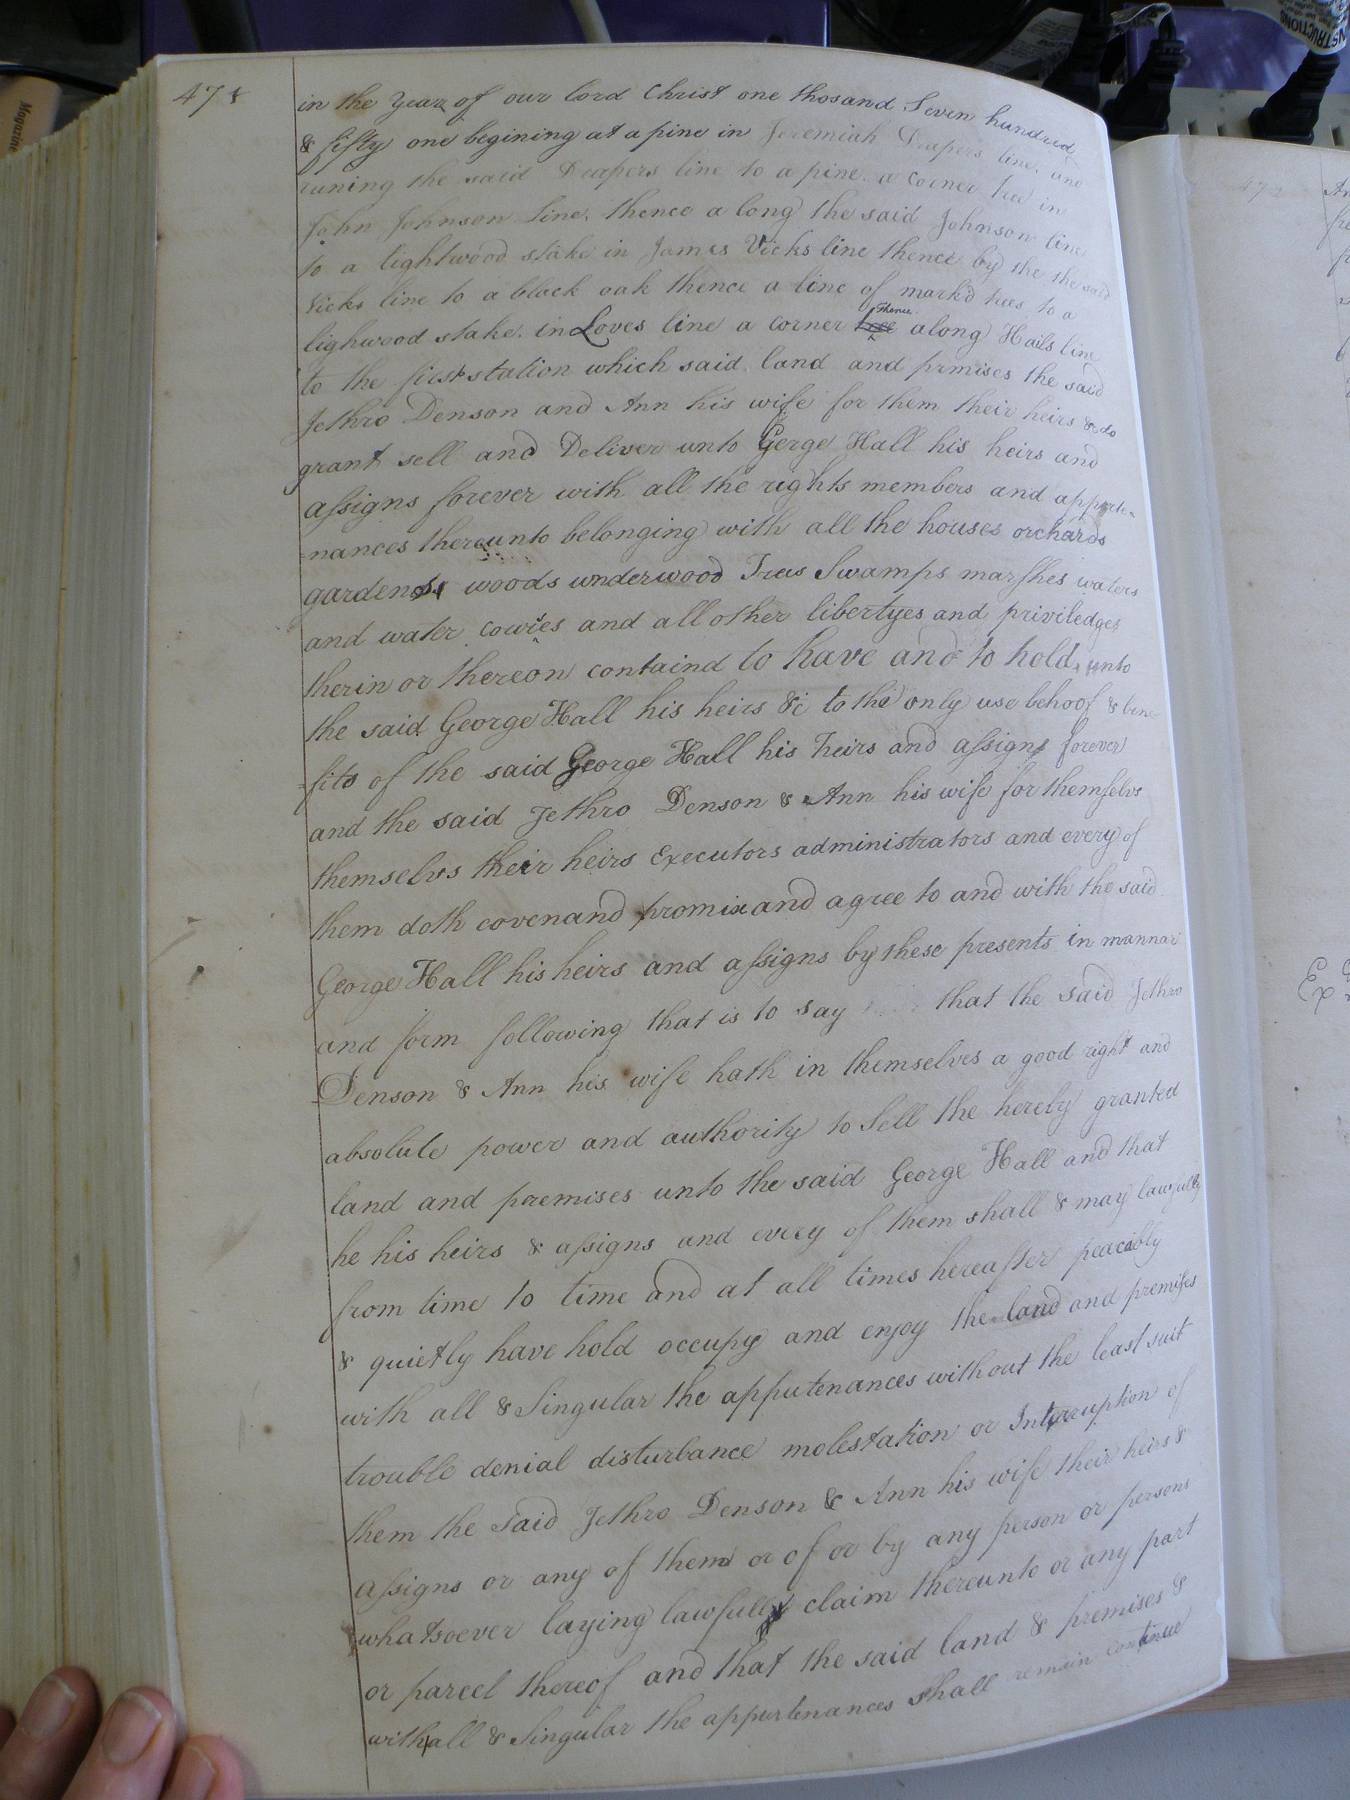 478
in the Year of our Lord Christ one thosand Seven hundred
& fifty one begining at a pine in Jeremiah Drapers line, and
runing the said Drapers line to a pine, a corner tree in
John Johnson line, thence a long the said Johnson line
to a lightwood stake in James Vicks line thence by the the said
Vicks line to a black oak thence a line of markd trees to a
lighwood stake in Loves line a corner tree Thence along Hails line
to the first station which said land and prmises the said
Jethro Denson and Ann his wife for them their heirs & do
grant sell and Deliver unto Gerge Hall his heirs and
assigns forever with all the rights members and apperte-
-nances thereunto belonging with all the houses orchards
gardens woods underwood Trees Swamps marshes waters
and water cowres and all other libertyes and priviledges
therin or thereon containd to have and to hold unto
the said George Hall his heirs &c to the only use behoof & bene
-fits of the said George Hall his heirs and assigns forever
and the said Jethro Denson & Ann his wife for themselvs
themselvs their heirs Executors administrators and every of
them doth covenand promis and agree to and with the said
George Hall his heirs and assigns by these presents in mannar
and form following that is to say that the said Jethro
Denson & Ann his wife hath in themselves a good right and
absolute power and authority to Sell the hereby granted
land and premises unto the said George Hall and that
he his heirs & assigns and every of them shall & may lawfully
from time to time and at all times hereafter peacably
& quietly have hold occupy and enjoy the land and premises
with all & Singular the apputenances without the least suit
trouble denial disturbance molestation or Interuption of
them the said Jethro Denson & Ann his wife their heirs &
assigns or any of them or of or by any person or persons
whatsoever laying lawfully claim thereunto or any part
or parcel thereof and that the said land & premises &
with all & Singular the appurtenances shall remain continue
Magazine
INSTRUCTIONS